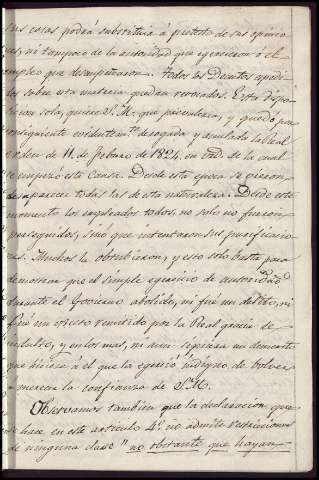 sus cosas podrá substituir á pretesto de sus opinio-
nes, ni tampoco de la autoridad que egercieron ó el
empleo que desempeñaron. Todos los Decretos espedi-
dos sobre esta materia quedan revocados. Esta dispo-
sicion sola, quiere S. M. que prevalezca, y quedó por
consiguiente evidentemte. derogada y anulada la Real
orden de 11. de Febrero de 1824. en vtd. de la cual
se empezó esta Causa. Desde esta epoca se vieron
desaparecer todas las de esta naturaleza. Desde este
momento los empleados todos, no solo no fueron
perseguidos, sinó que intentaron sus purificacio-
nes. Muchos la obtubieron, y esto solo basta para
demostrar que el simple egercicio de autoridad
durante el Govierno abolido, ni fué un delito, ni
fué un esceso remitido por la Real gracia de
indulto, y en los mas, ni aun siquiera un demerito
que hiciese á el que la egerció indigno de bolver
a merecer la confianza de S. M.
Observamos tambien que la declaracion que
se hace en este articulo 4º. no admite restricciones
de ninguna clase "no obstante que hayan